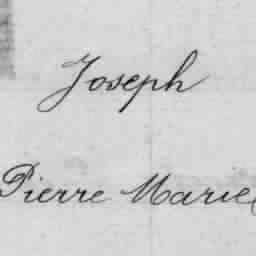 Joseph
Pierre Marie